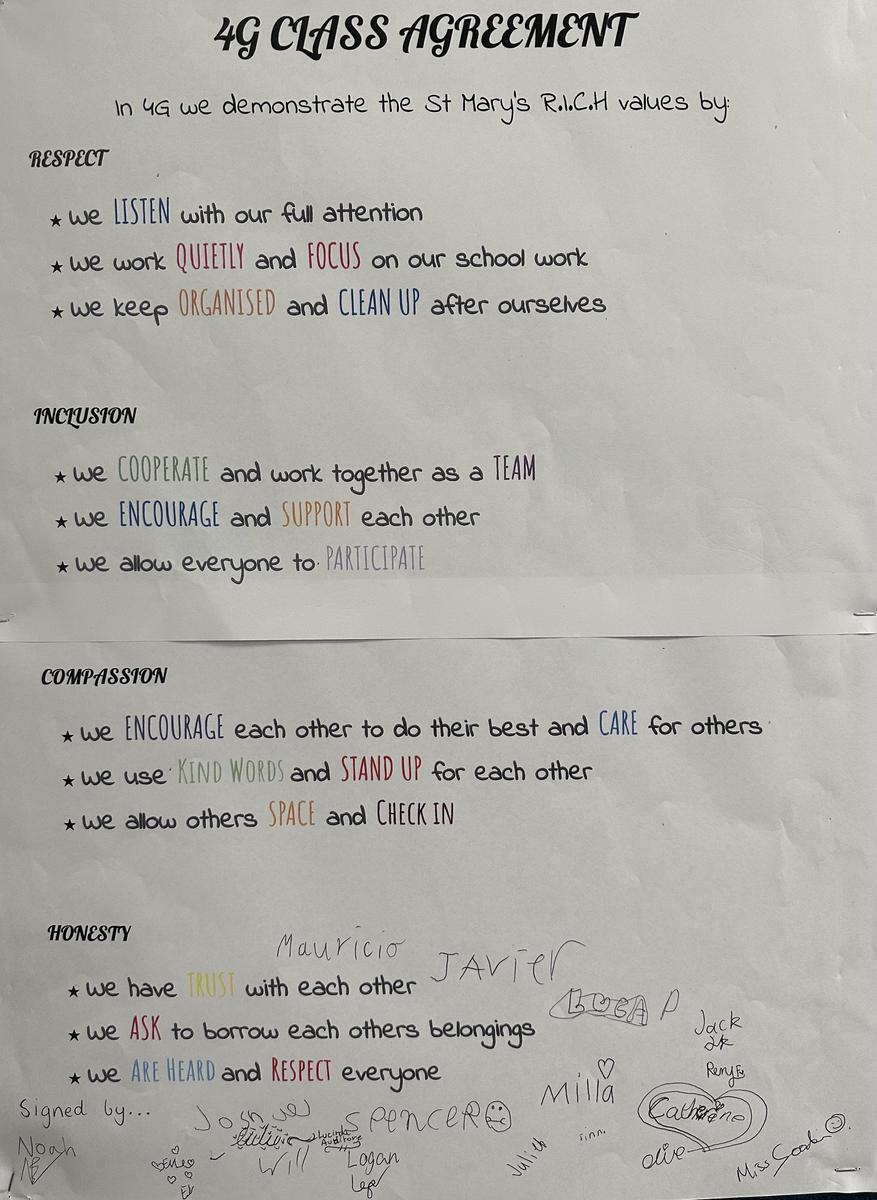 4G CLASS AGREEMENT
In 4G we demonstrate the St Mary's R.I.C.H values by:
RESPECT
★ we LISTEN with our full attention
★ we work QUIETLY and FOCUS on our school work
★ we keep ORGANISED and CLEAN UP after ourselves
INCLUSION
★ we COOPERATE and work together as a TEAM
★ we ENCOURAGE and SUPPORT each other
★ we allow everyone to PARTICIPATE
COMPASSION
★ we ENCOURAGE each other to do their best and CARE for others
★ we use KIND WORDS and STAND UP for each other
★ we allow others SPACE and CHECK IN
HONESTY
Mauricio
JAVier
★ we have TRUST with each other
★ we ASK to borrow each others belongings
Jack
★ we ARE HEARD and RESPECT everyone
Milla
Signed by...
SPENCER
Catherine
Noah
Will
Logan
Olive
Miss